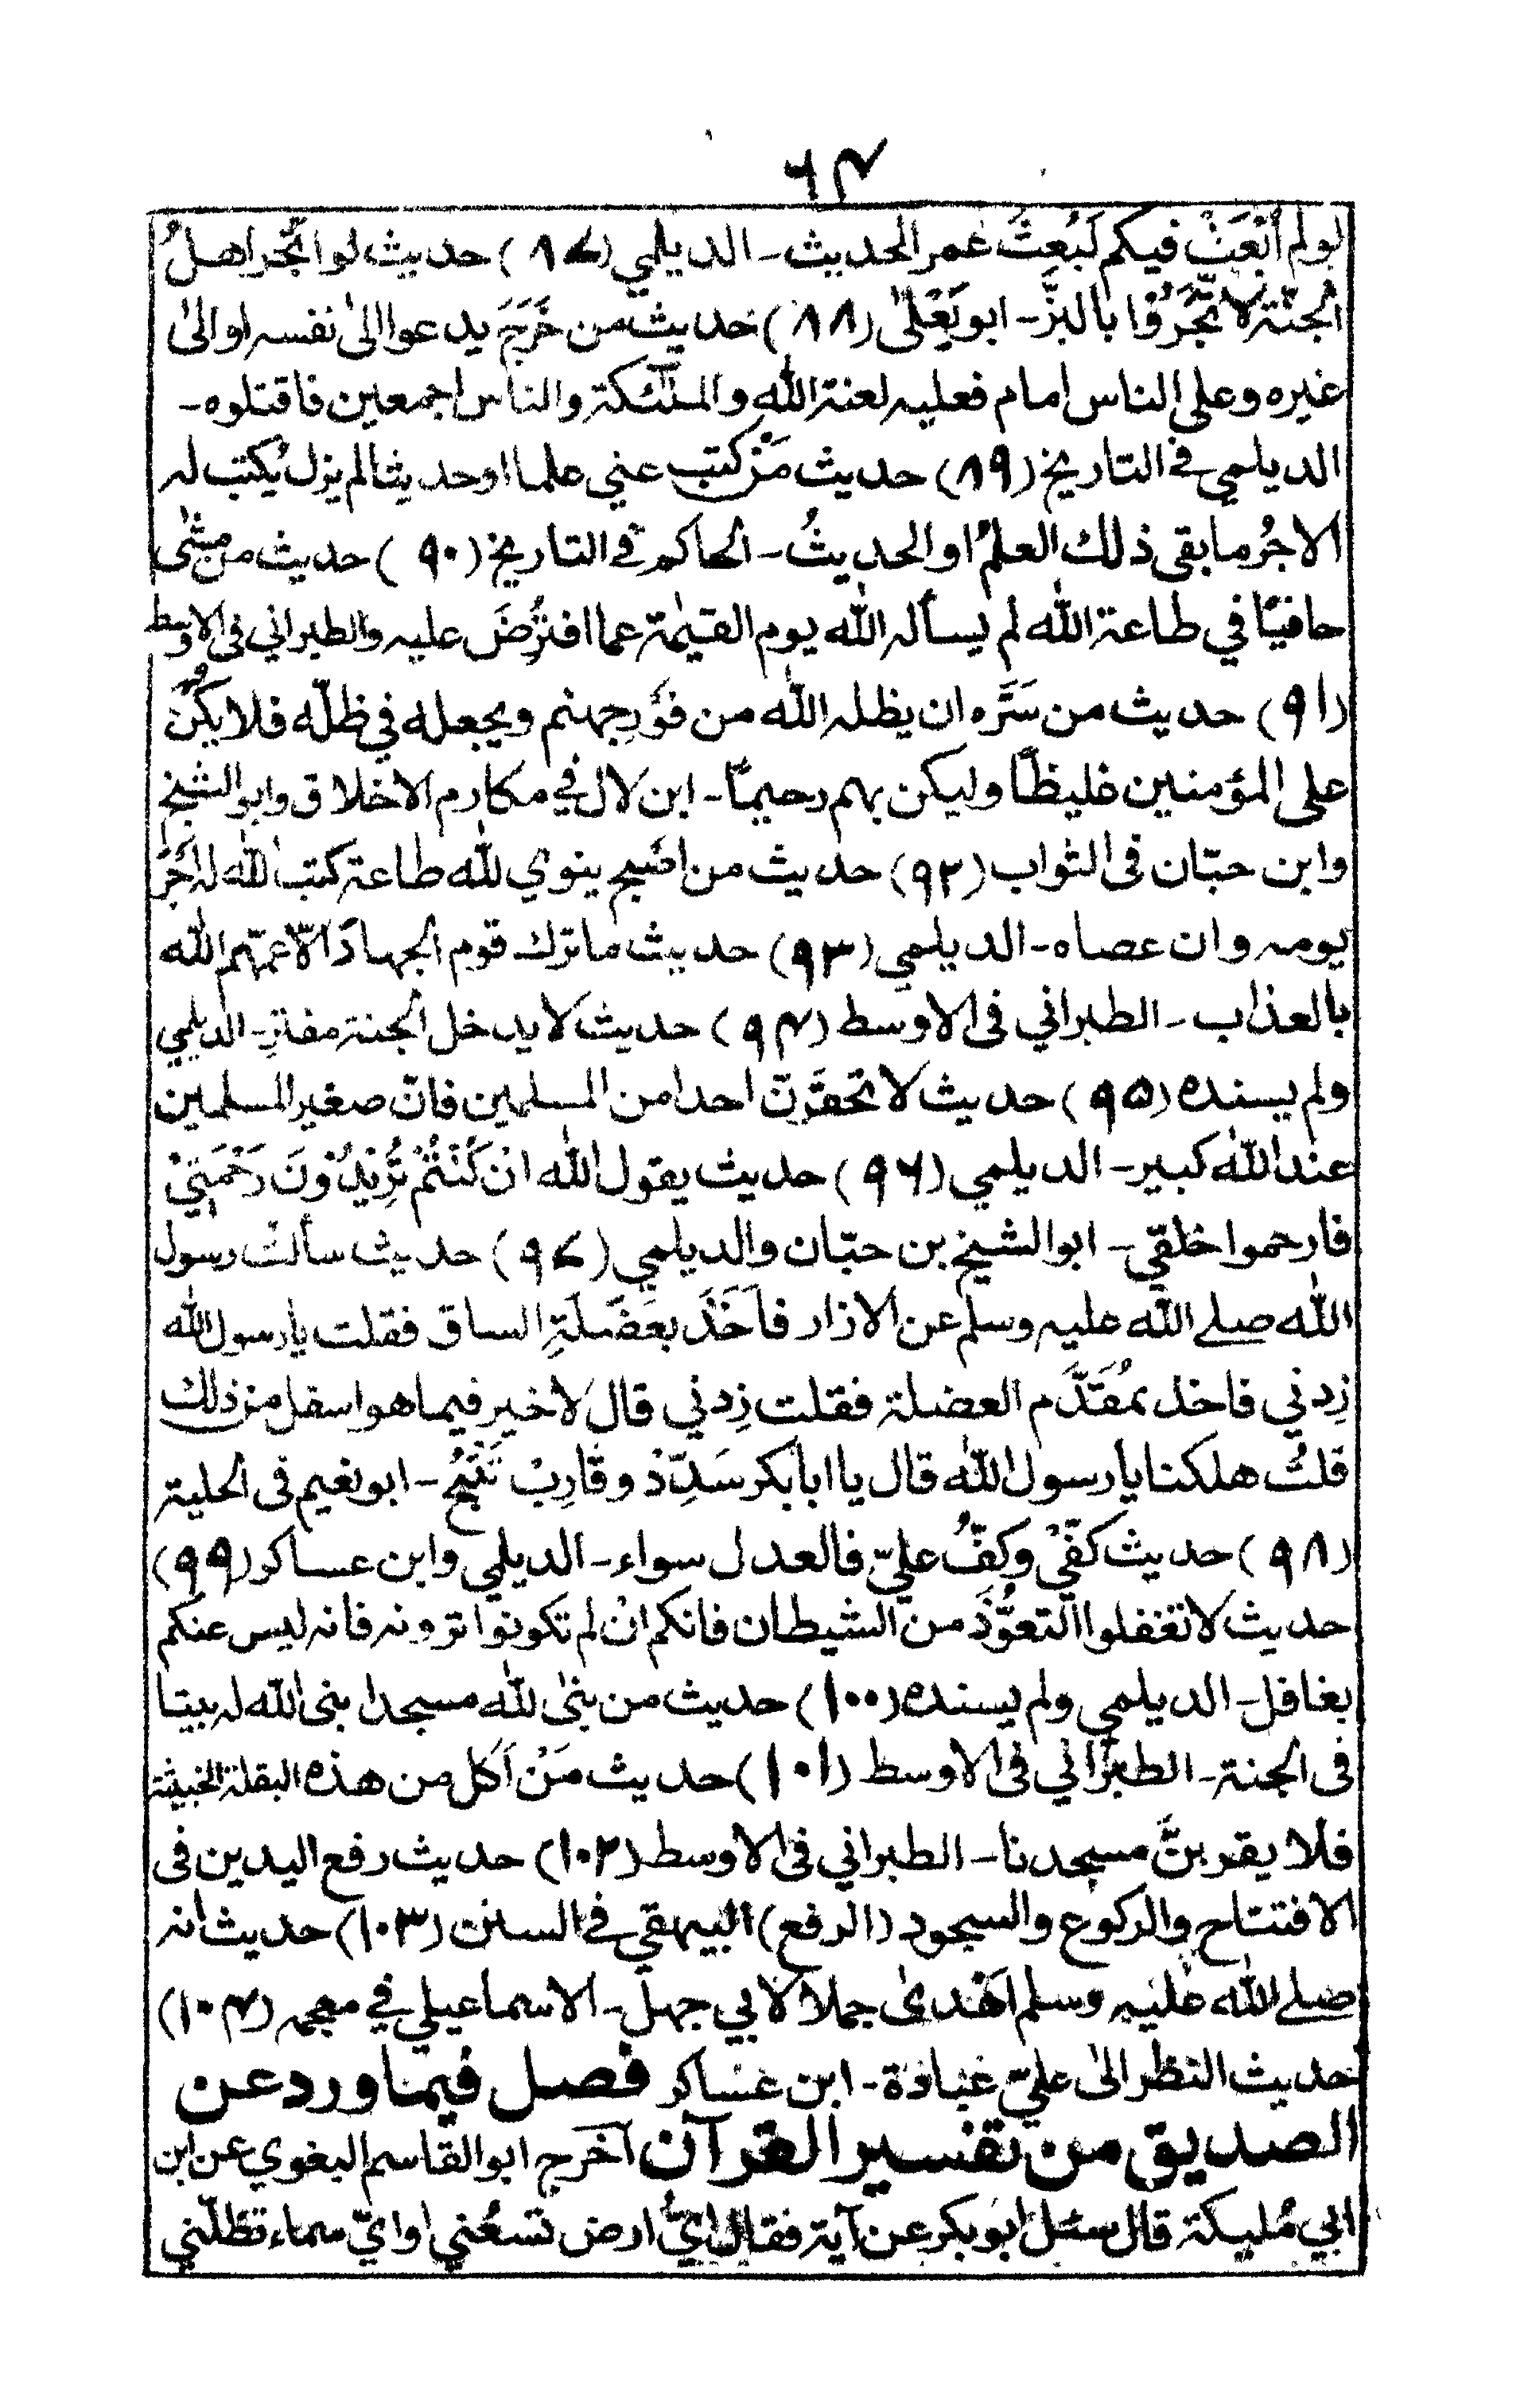 ٦٤
لو لم اُبْعَثْ فيكم لَبُعِثَ عمر الحديث ـ الديلمي (٨٧) حديث لو اتّجر اهلُ
الجنّة لاتّجَرُوا بالبَزِّ ـ ابو يَعْلىٰ (٨٨) حديث من خَرَجَ يدعوا الىٰ نفسه او الىٰ
غيره وعلى الناس امام فعليه لعنة الله والملٰئكة والناس اجمعين فاقتلوه ـ
الديلمي فى التاريخ (٨٩) حديث مَنْ كتب عني علما او حديثا لم يزل يُكتب له
الاجرُ ما بقى ذلك العلمُ او الحديثُ ـ الحاكم فى التاريخ (٩٠) حديث من مشٰى
حافيًا في طاعة الله لم يسأله الله يوم القيٰمة عما افتُرِضَ عليه والطبراني فى الاوسط
(٩١) حديث من سَرَّه ان يظله الله من فَوْرِ جهنم ويجعله في ظلّه فلا يكُنْ
على المؤمنين غليظًا وليكن بهم رحيمًا ـ ابن لال في مكارم الاخلاق وابو الشيخ
وابن حبّان فى الثواب (٩٢) حديث من اصبح ينوي لله طاعة كتب الله له اَجْرَ
يومه وان عصاه ـ الديلمي (٩٣) حديث ما ترك قوم الجهادَ الّا عمّهم الله
بالعذاب ـ الطبراني فى الاوسط (٩٤) حديث لا يدخل الجنة مفترٍ ـ الديلمي
ولم يسنده (٩٥) حديث لا تحقّرَنّ احدا من المسلمين فانّ صغير المسلمين
عند الله كبير ـ الديلمي (٩٦) حديث يقول الله انْ كُنْتُمْ تُرِيْدُوْنَ رَحْمَتِيْ
فارحموا خلقي ـ ابو الشيخ بن حبّان والديلمي (٩٧) حديث سألت رسول
الله صلے الله عليه وسلم عن الازار فاَخَذَ بعَضَلَةِ الساق فقلت يا رسول الله
زِدني فاخذ بمُقَدَّم العضلة فقلت زِدني قال لا خير فيما هو اسفل من ذلك
قلتُ هلكنا يا رسول الله قال يا ابا بكر سَدِّدْ وقارِبْ تَنْجُ ـ ابو نعيم فى الحلية
(٩٨) حديث كفّيْ وكفُّ عليّ فى العدل سواء ـ الديلمي وابن عساكر (٩٩)
حديث لا تغفلوا التعوُّذَ من الشيطان فانكم انْ لم تكونوا ترونه فانه ليس عنكم
بغافل ـ الديلمي ولم يسنده (١٠٠) حديث من بنىٰ لله مسجدا بنى الله له بيتا
فى الجنة ـ الطبراني فى الاوسط (١٠١) حديث مَنْ اَكل من هذه البقلة الخبيثة
فلا يقربنَّ مسجدنا ـ الطبراني فى الاوسط (١٠٢) حديث رفع اليدين فى
الافتتاح والركوع والسجود (الرفع) البيهقي فى السنن (١٠٣) حديث انه
صلے الله عليه وسلم اَهْدىٰ جملا لابي جهل ـ الاسماعيلي في معجمه (١٠٤)
حديث النظر الىٰ عليّ عبادة ـ ابن عساكر فصل فيما ورد عن
الصديق من تفسير القرآن اَخرج ابو القاسم البغوي عن ابن
ابي مُليكة قال سئل ابو بكر عن آية فقال ايُّ ارض تسعُني او ايّ سماء تظلّني